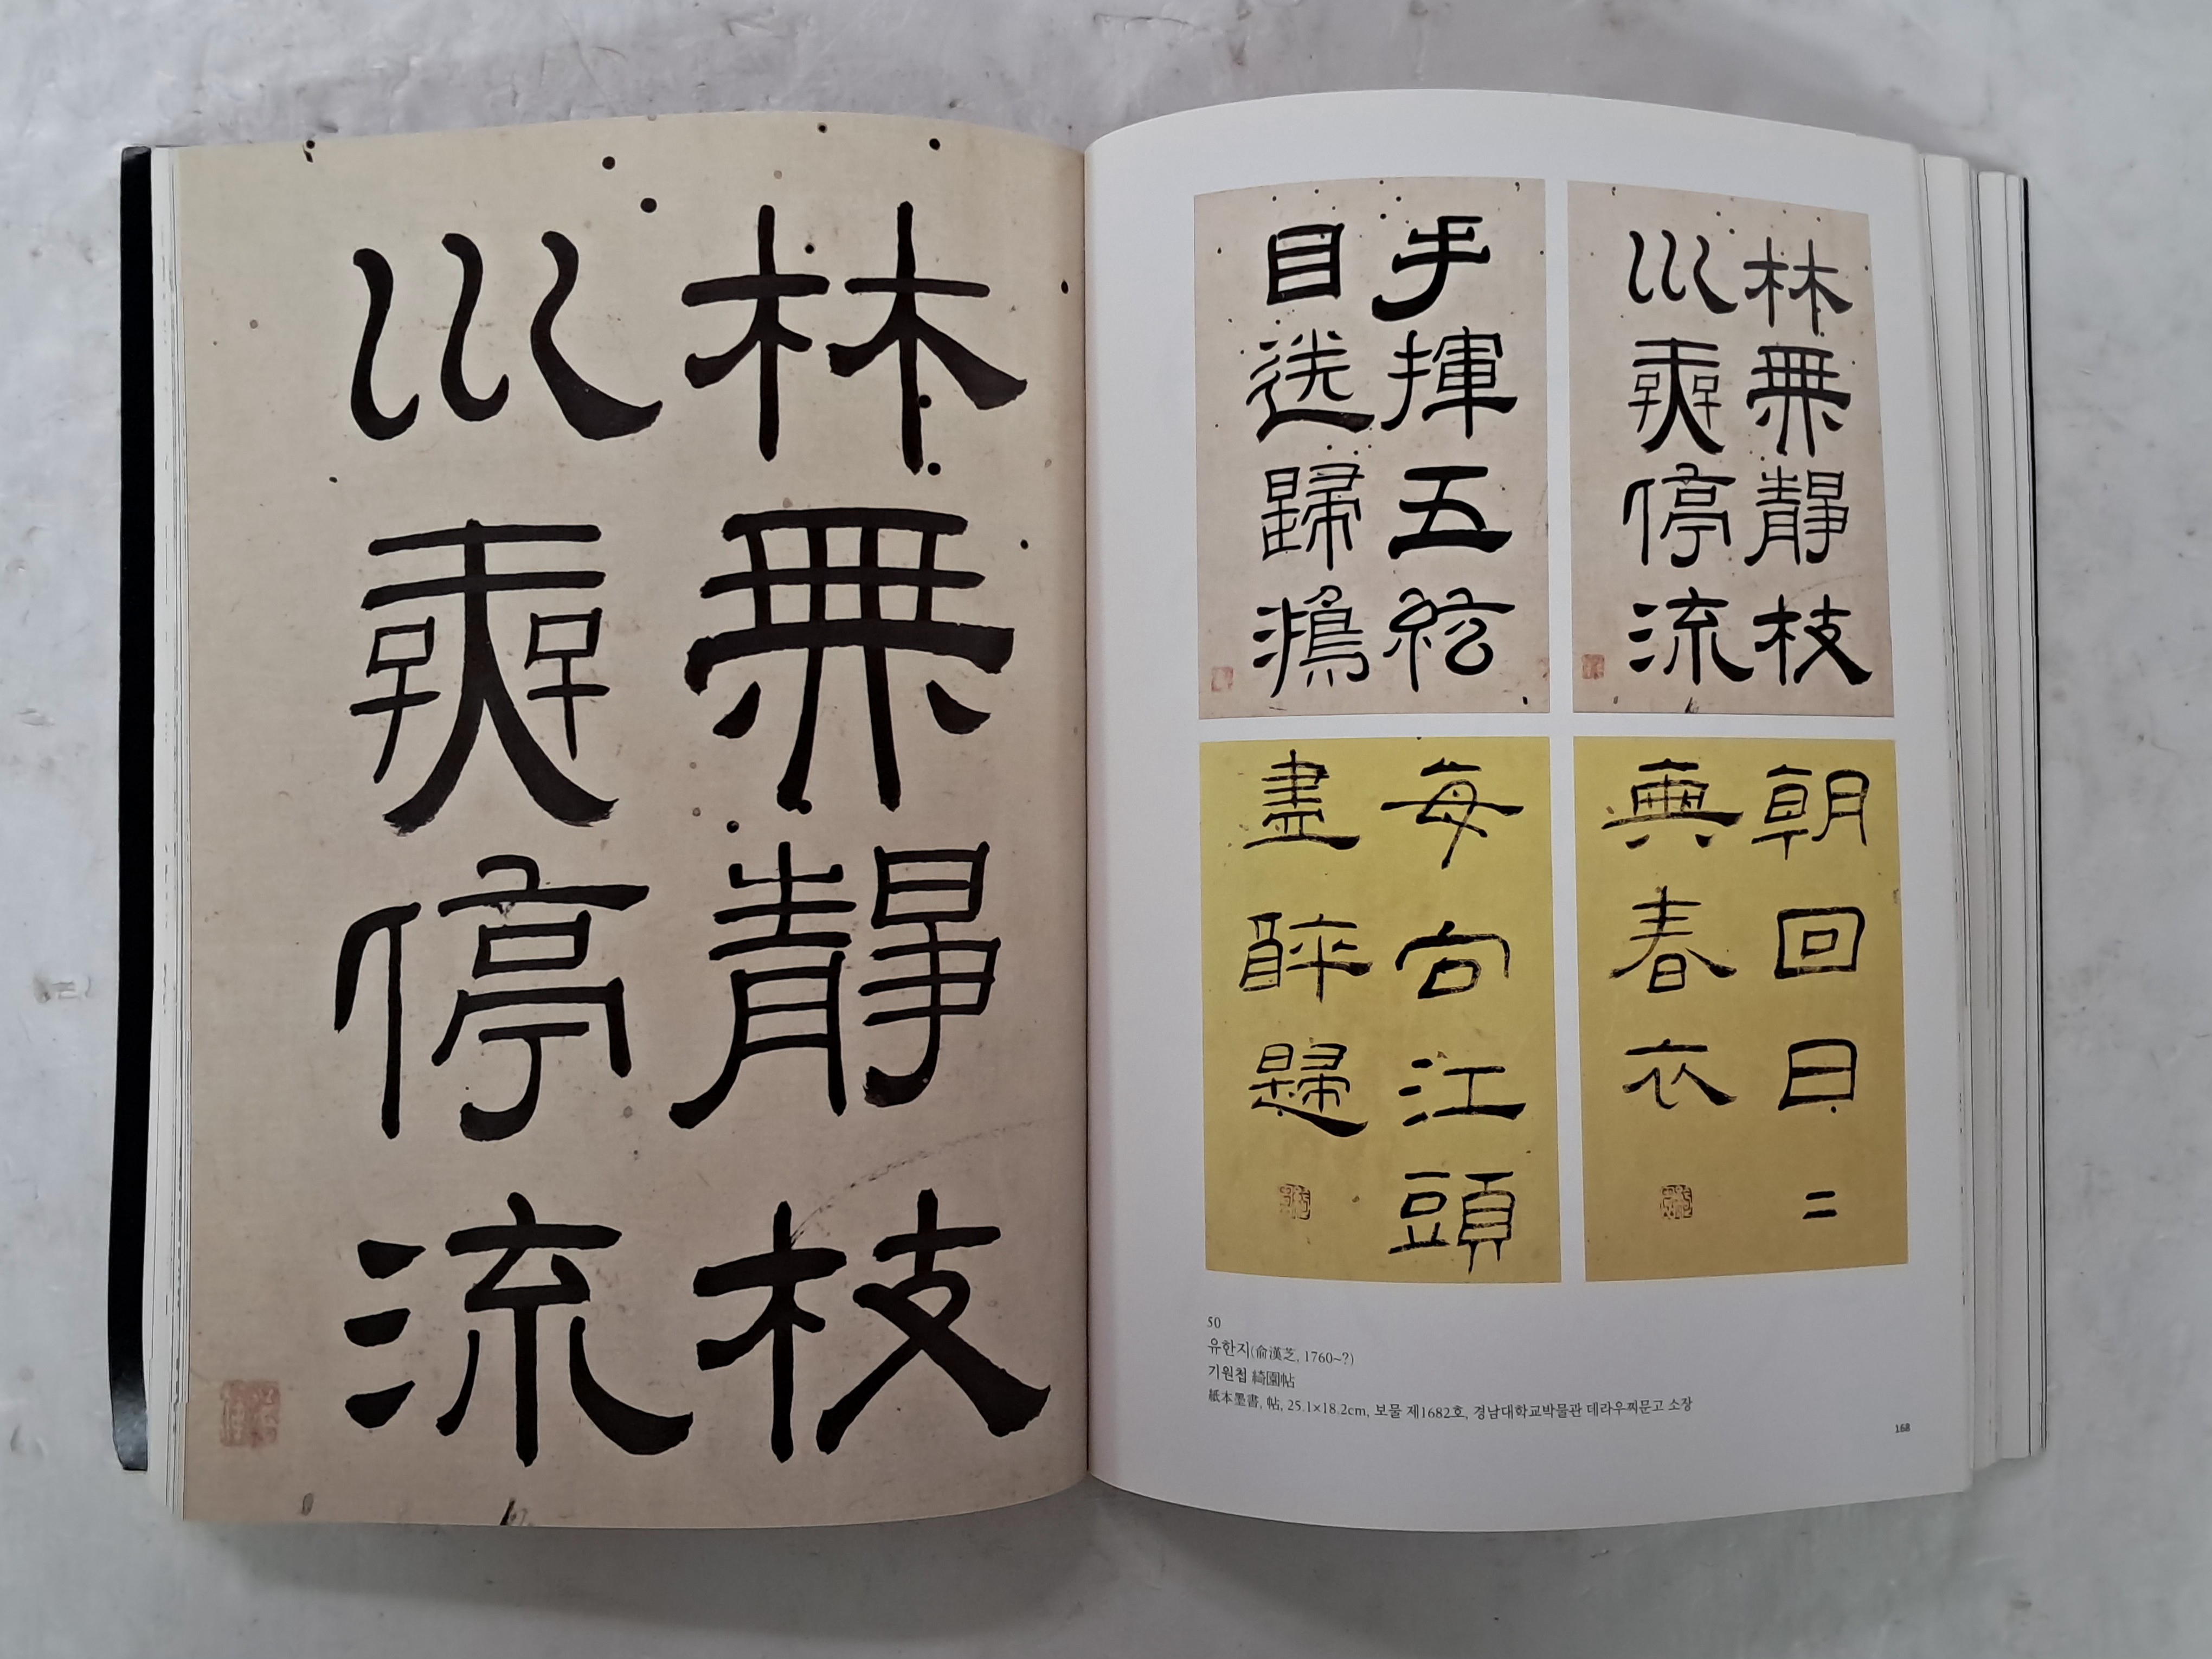 林無靜枝
川無停流
林無靜枝
川無停流
手揮五絃
目送歸鴻
朝回日二
典春衣
每向江頭
盡醉歸
50
유한지(兪漢芝, 1760~?)
기원첩 綺園帖
紙本墨書, 帖, 25.1×18.2cm, 보물 제1682호, 경남대학교박물관 데라우찌문고 소장
168